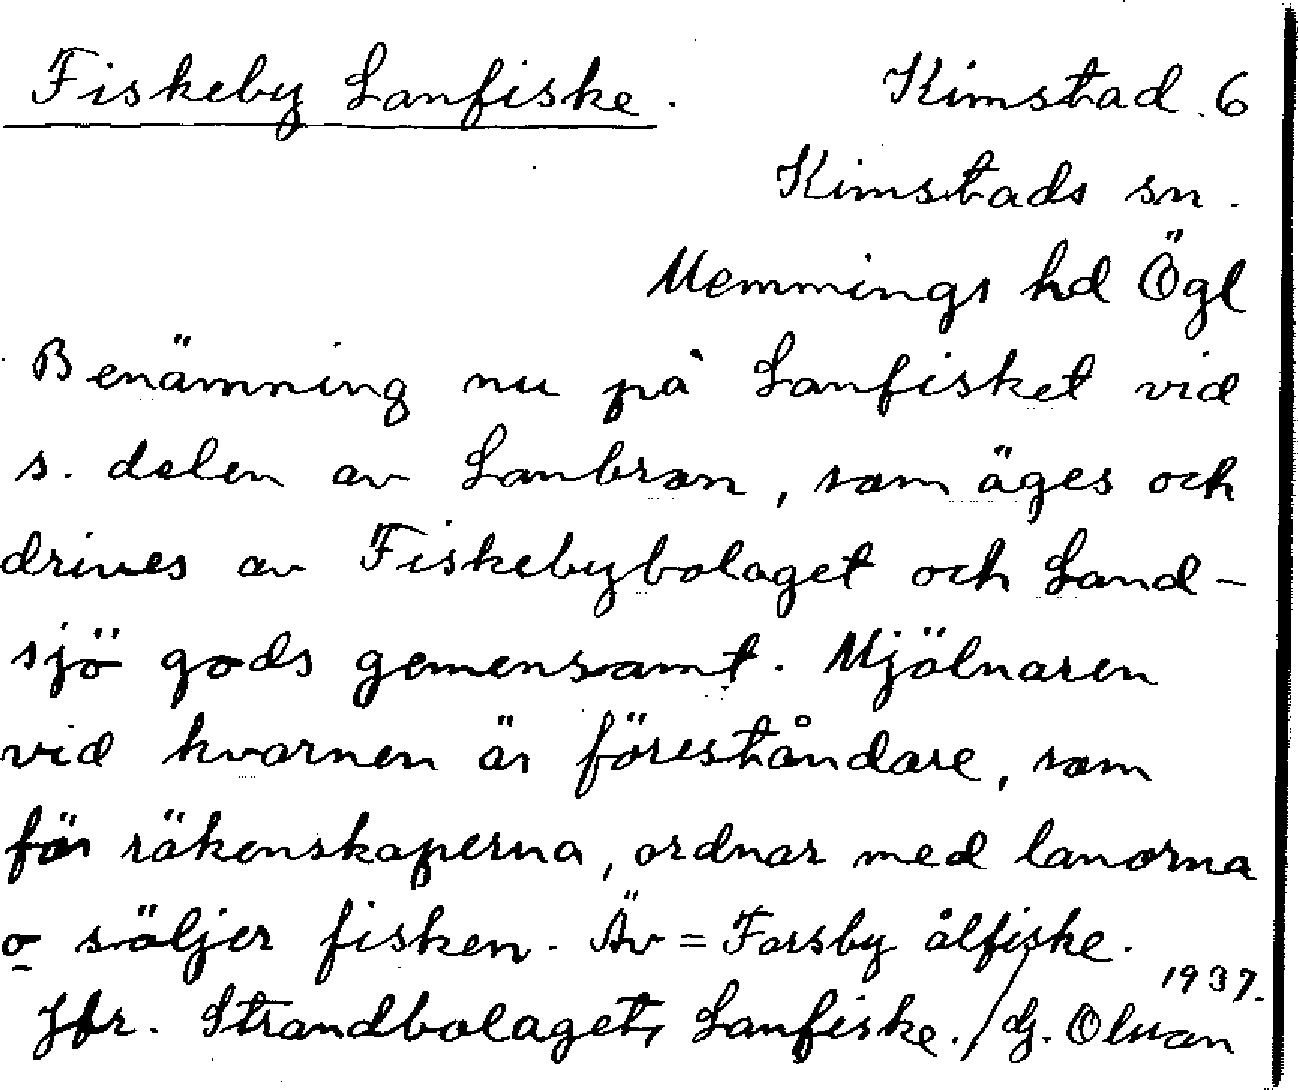 Fiskeby Lanfiske. Kimstad 6
Kimstads sn.
Memmings hd Ögl
Benämning nu på Lanfisket vid
s. delen av Lanbron, som äges och
drives av Fiskebybolaget och Land-
sjö gods gemensamt. Mjölnaren
vid kvarnen är föreståndare, som
för räkenskaperna, ordnar med lanorna
o säljer fisken. Äv = Forsby ålfiske.
Jfr. Strandbolagets Lanfiske. / G. Olson 1937.